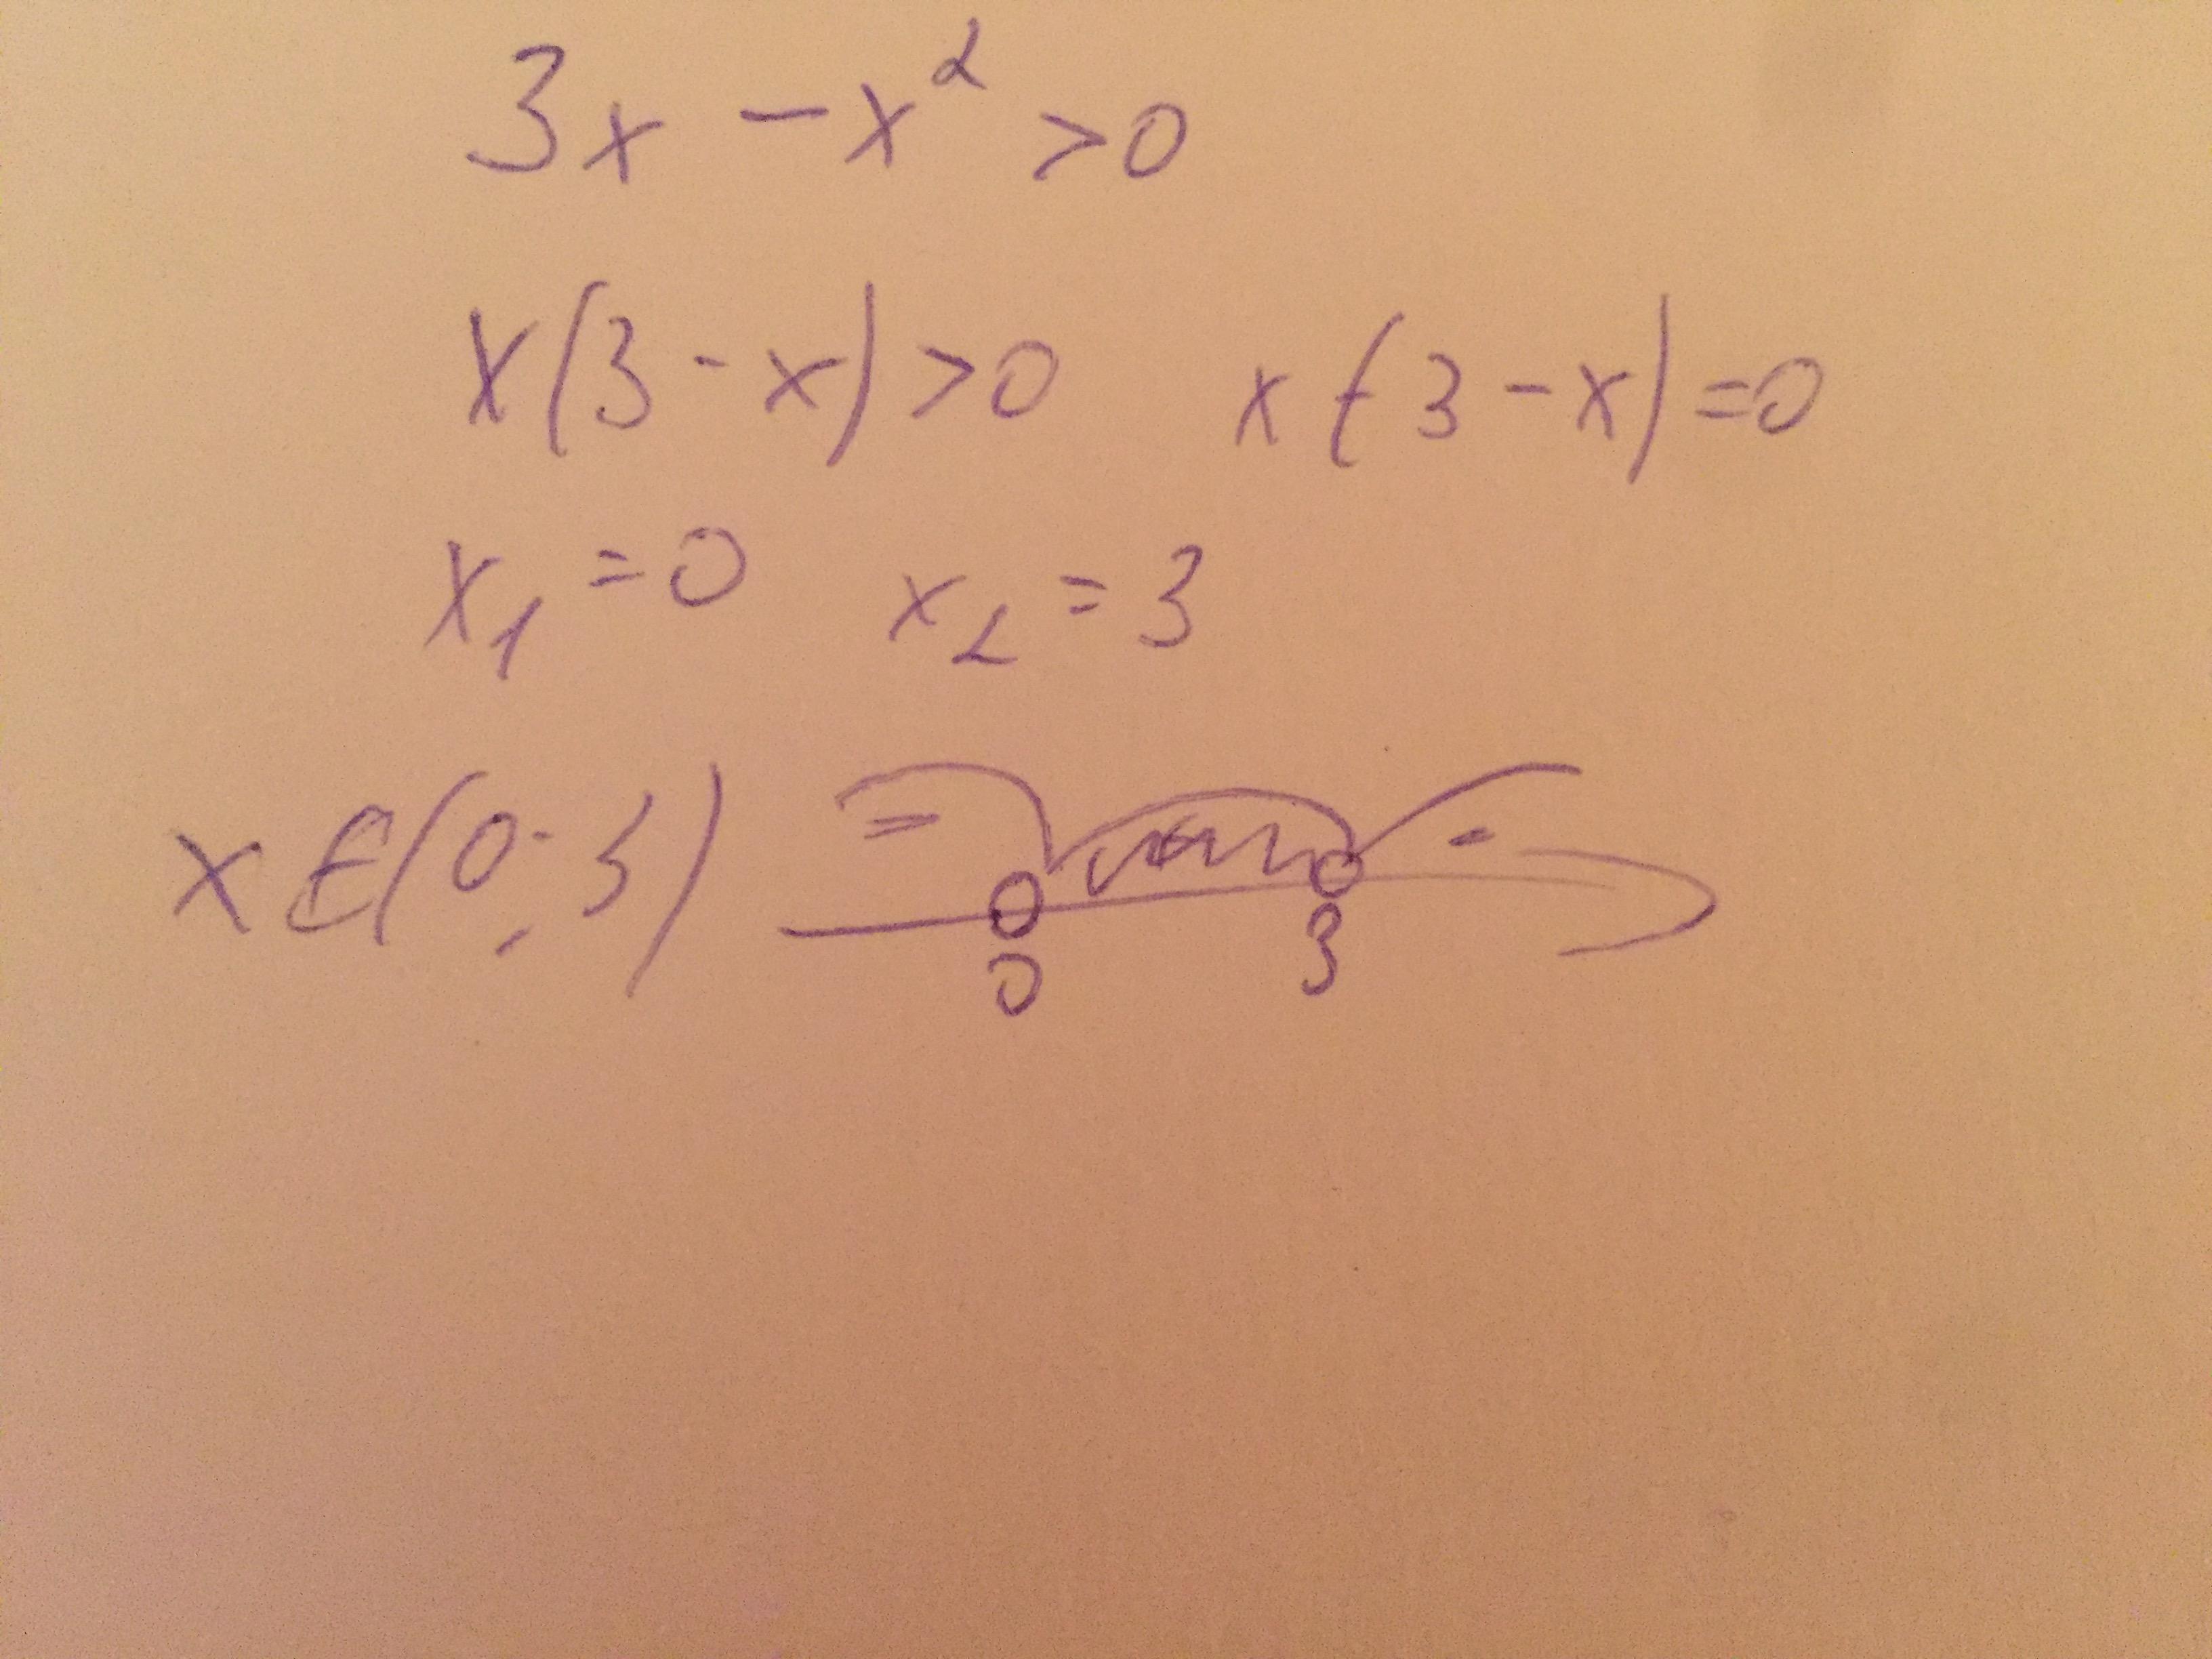 3x - x² > 0
x(3 - x) > 0 x(3 - x) = 0
x₁ = 0 x₂ = 3
x ∈ (0; 3) - + -
0 3